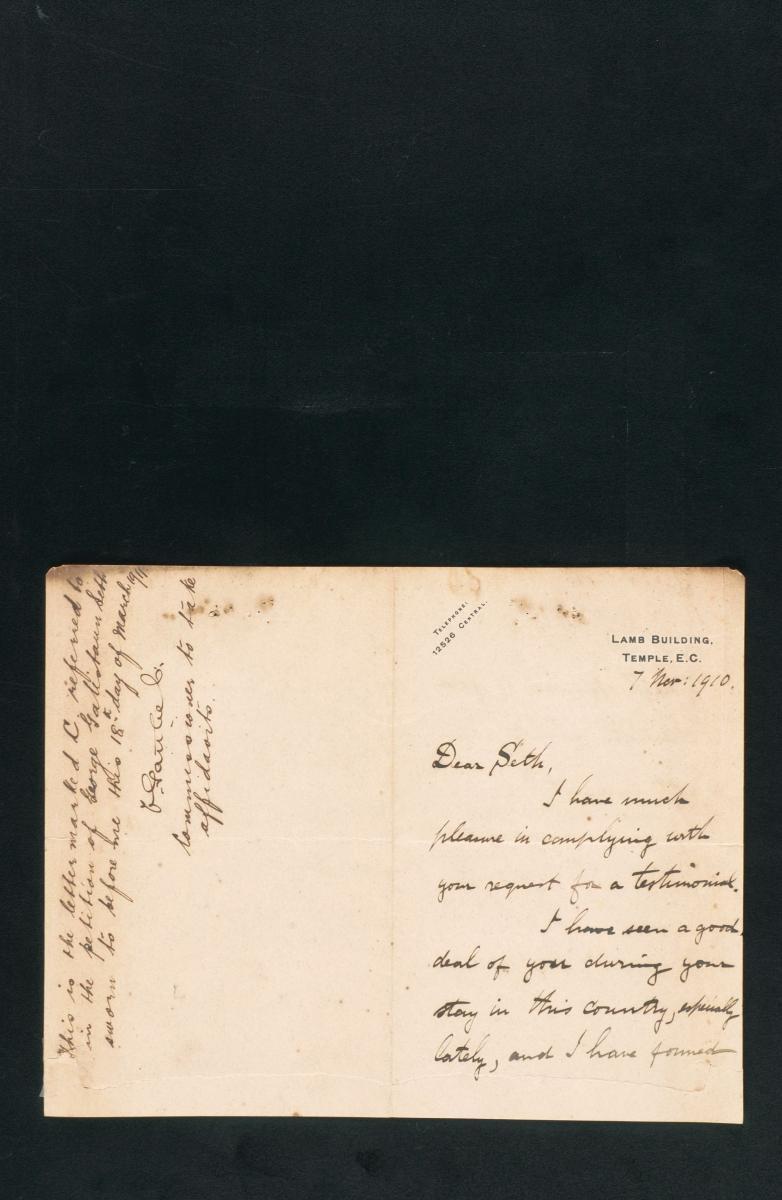 This is the letter marked C. referred to
in the petition of George Gallstaun Seth
sworn to before me this 18th day of March 1911
Commissioner to take
affidavits.
TELEPHONE:
12526 CENTRAL.
LAMB BUILDING,
TEMPLE, E.C.
7 Nov: 1910.
Dear Seth,
I have much
pleasure in complying with
your request for a testimonial.
I have seen a good
deal of you during your
stay in this country, especially
lately, and I have formed